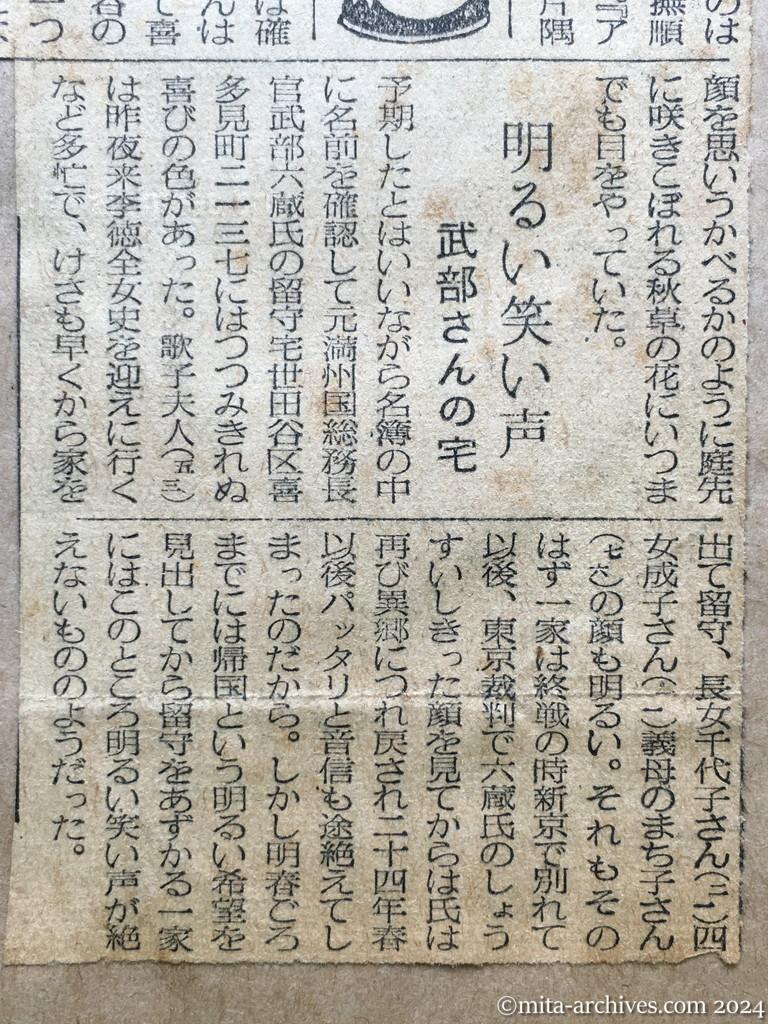 のは
撫順
『ア
片隅
は確
んは
て喜
春の
二つ
顔を思いうかべるかのように庭先
に咲きこぼれる秋草の花にいつま
でも目をやっていた。
明るい笑い声
武部さんの宅
予期したとはいいながら名簿の中
に名前を確認して元満州国総務長
官武部六蔵氏の留守宅世田谷区喜
多見町二一三七にはつつみきれぬ
喜びの色があった。歌子夫人(五三)
は昨夜来李徳全女史を迎えに行く
など多忙で、けさも早くから家を
出て留守、長女千代子さん 四
女成子さん 義母のまち子さん
の顔も明るい。それもその
はず一家は終戦の時新京で別れて
以後、東京裁判で六蔵氏のしょう
すいしきった顔を見てからは氏は
再び異郷につれ戻され二十四年春
以後パッタリと音信も途絶えてし
まったのだから。しかし明春ごろ
までには帰国という明るい希望を
見出してから留守をあずかる一家
にはこのところ明るい笑い声が絶
えないもののようだった。
©mita-archives.com 2024